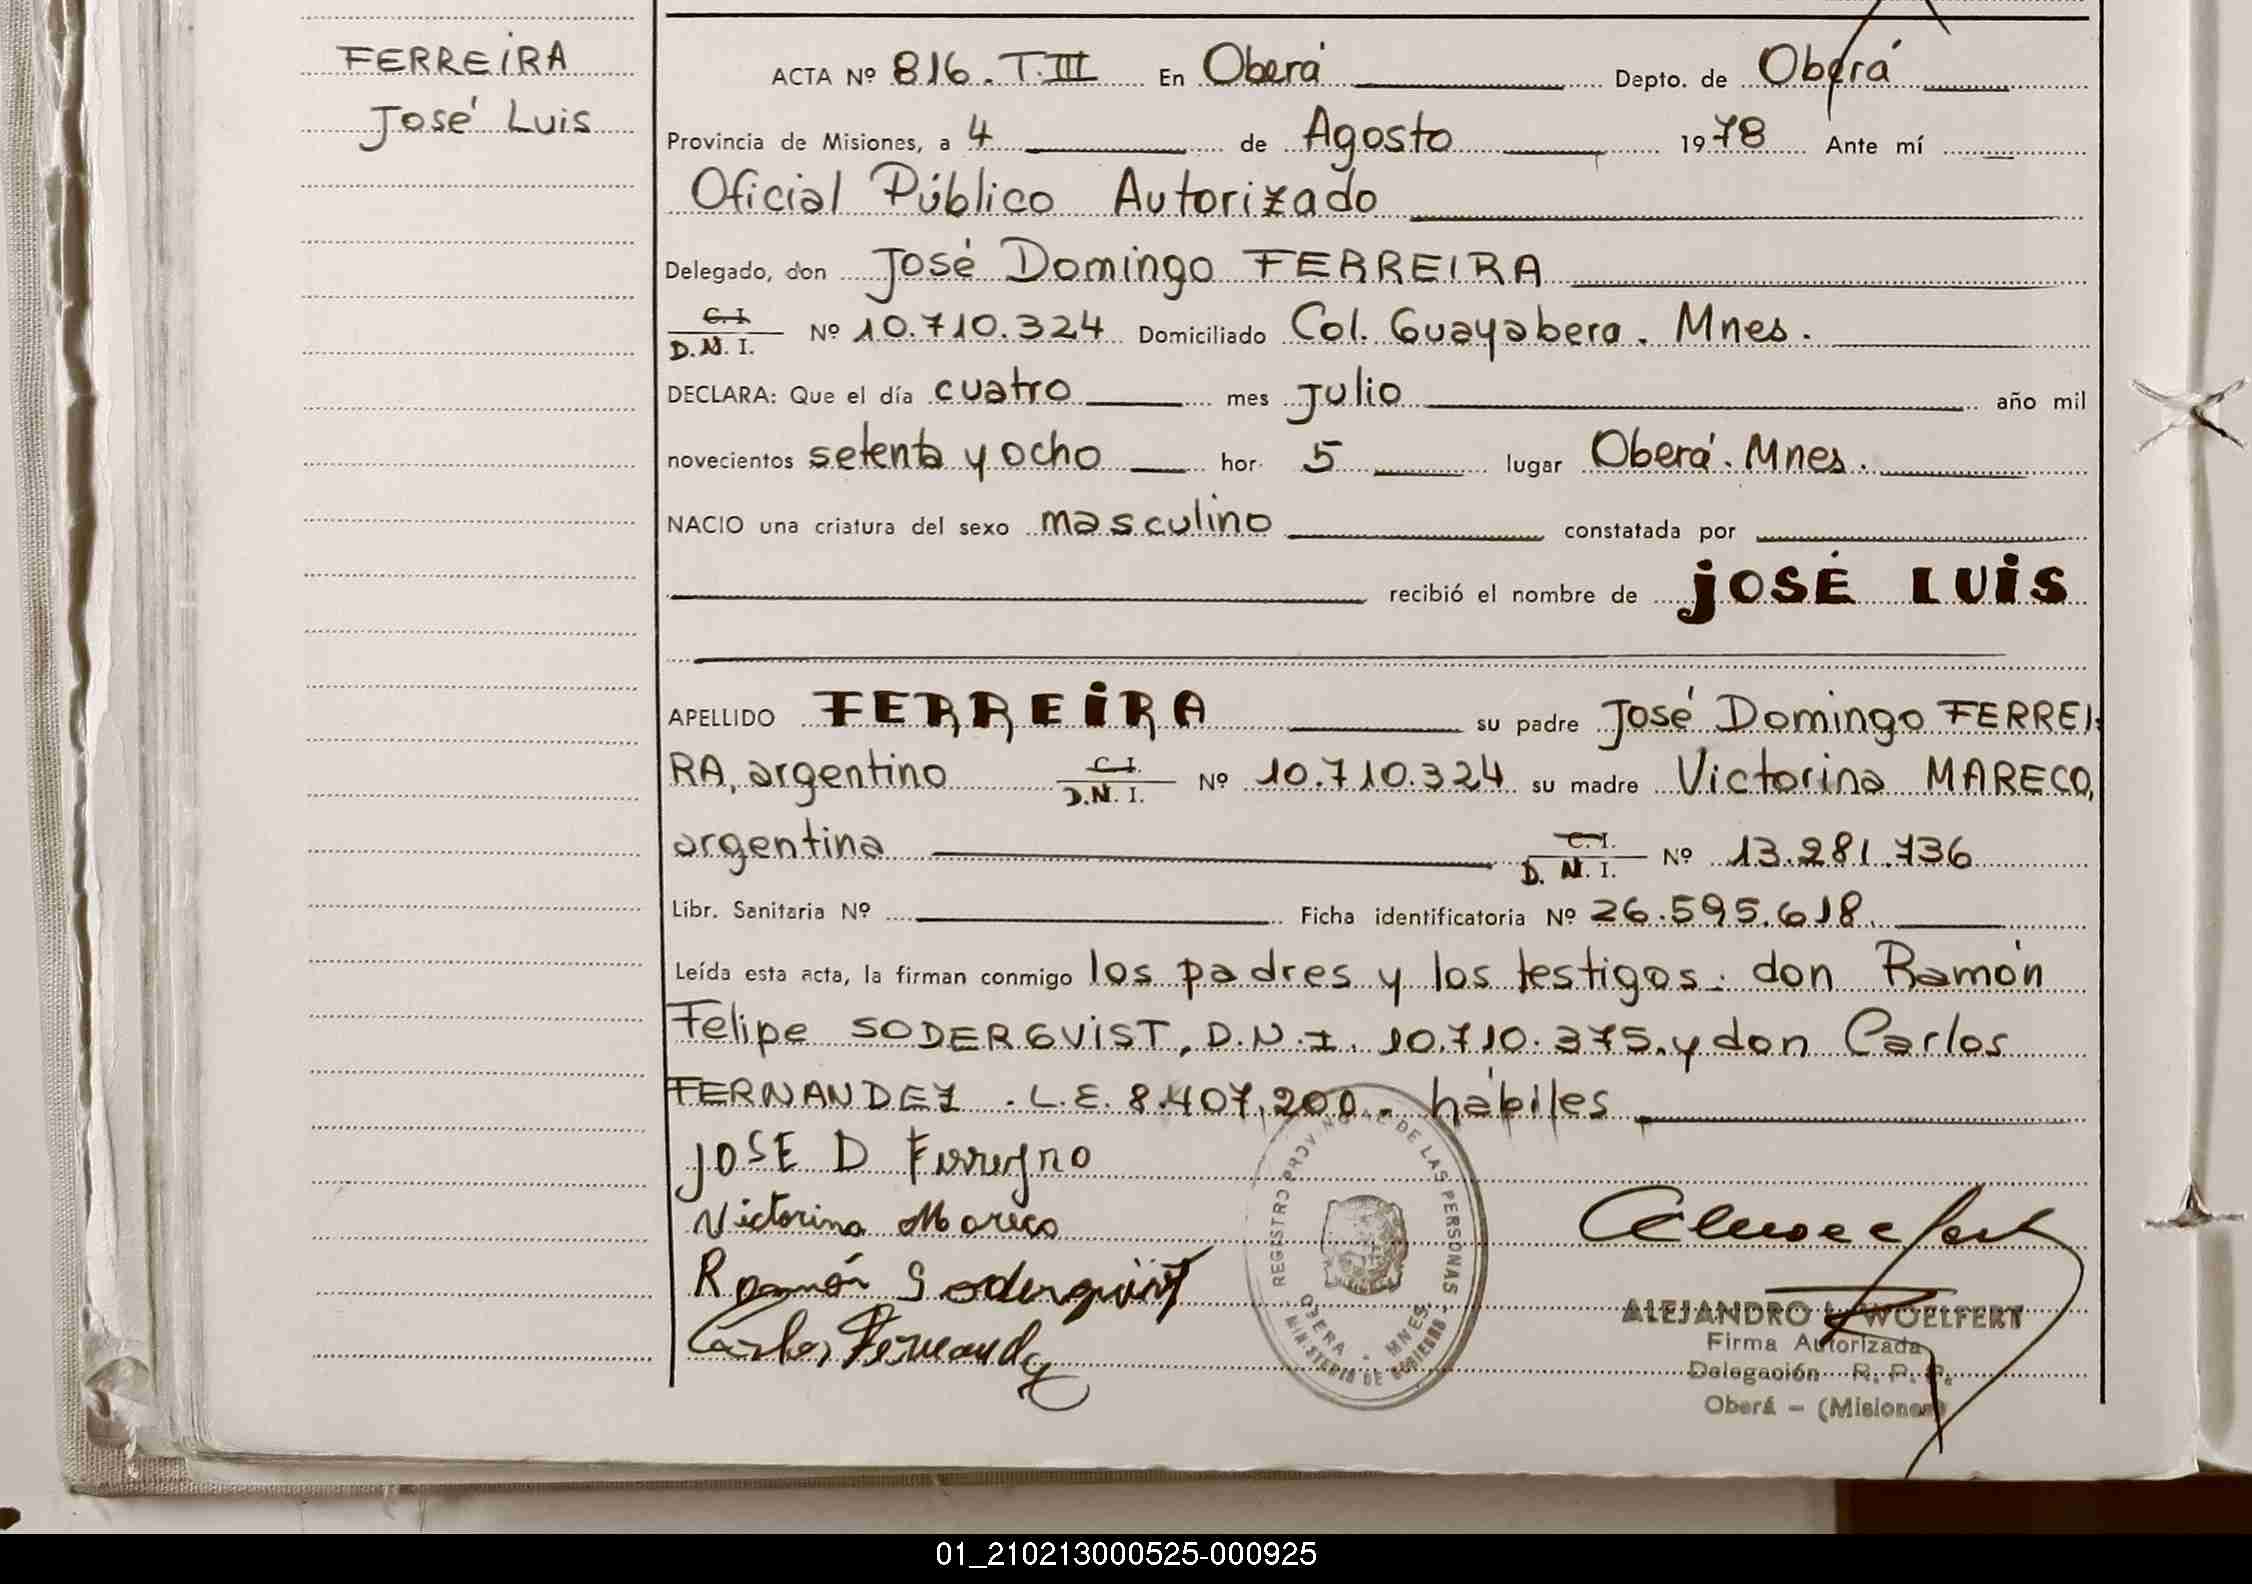 FERREIRA
José Luis
ACTA Nº 816. T. III En Oberá Depto. de Oberá
Provincia de Misiones, a 4 de Agosto 1978 Ante mí
Oficial Público Autorizado
Delegado, don José Domingo FERREIRA
C. I. D.N.I. Nº 10.710.324 Domiciliado Col. Guayabera. Mnes.
DECLARA: Que el día cuatro mes julio año mil
novecientos setenta y ocho hor. 5 lugar Oberá. Mnes.
NACIO una criatura del sexo masculino constatada por
recibió el nombre de JOSÉ LUIS
APELLIDO FERREIRA su padre José Domingo FERREI
RA, argentino C. I. D.N.I. Nº 10.710.324 su madre Victorina MARECO,
argentina C. I. D.N.I. Nº 13.281.736
Libr. Sanitaria Nº Ficha identificatoria Nº 26.595.618.
Leída esta acta, la firman conmigo los padres y los testigos: don Ramón
Felipe SODERGVIST, D.N.I. 10.710.375. y don Carlos
FERNANDEZ. L.E. 8.407.200. hábiles
JOSE D
Victorina Mareco
Ramón Soderquist
Carlos Fernandez
REGISTRO PROVINCIAL DE LAS PERSONAS
OBERA - MNES.
MINISTERIO DE GOBIERNO
ALEJANDRO L. WOELFERT
Firma Autorizada
Delegación R. P. P.
Oberá - (Misiones)
01_210213000525-000925